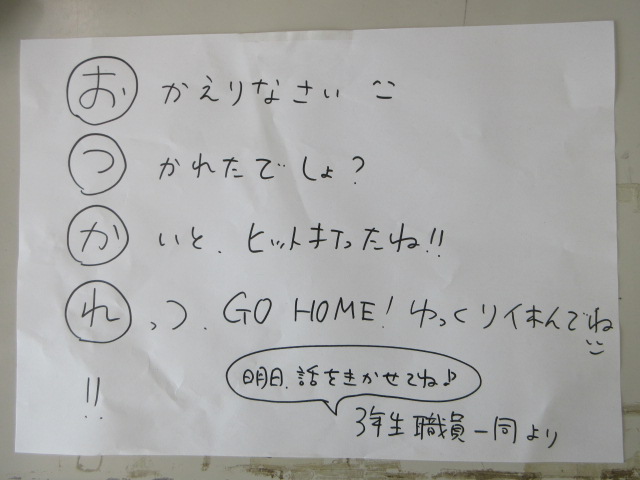 おかえりなさい
つかれたでしょ?
かいと、ヒット打ったね!!
れっつ、GO HOME! ゆっくり休んでね
!!
明日、話をきかせてね♪
3年生職員一同より